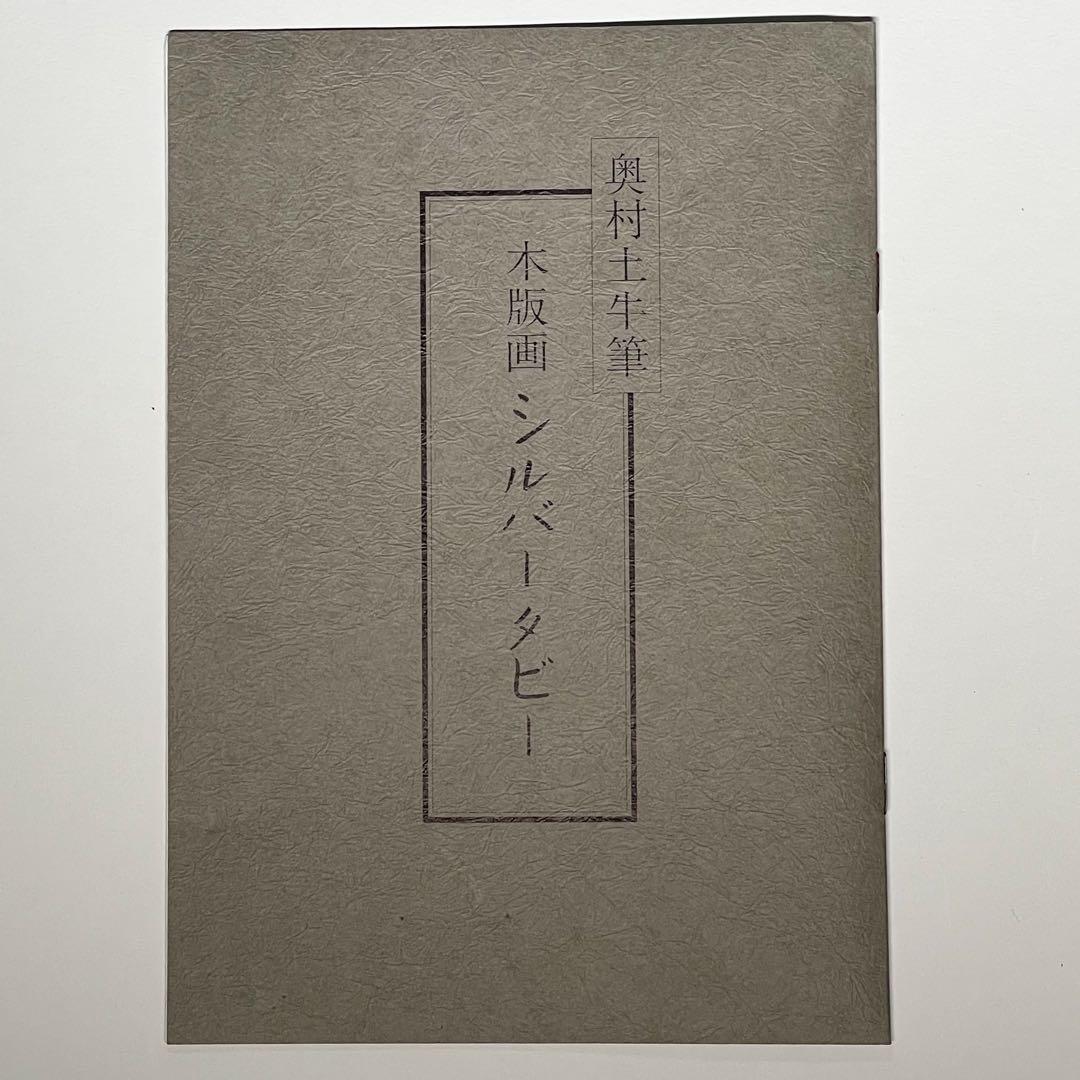 奥村土牛筆
木版画 シルバータビー